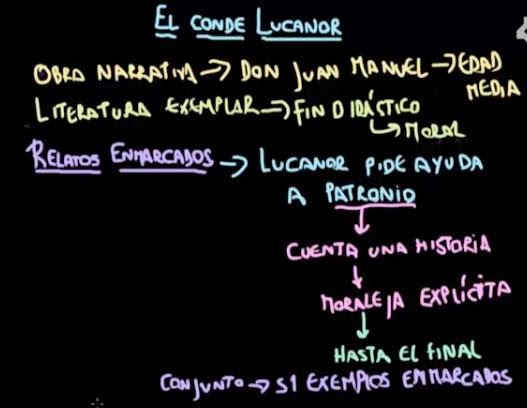 EL CONDE LUCANOR
OBRA NARRATIVA → DON JUAN MANUEL → EDAD
MEDIA
LITERATURA EXEMPLAR → FIN DIDÁCTICO
↳ MORAL
RELATOS ENMARCADOS → LUCANOR PIDE AYUDA
A PATRONIO
↓
CUENTA UNA HISTORIA
↓
MORALEJA EXPLÍCITA
↓
HASTA EL FINAL
CONJUNTO → 51 EXEMPLOS ENMARCADOS